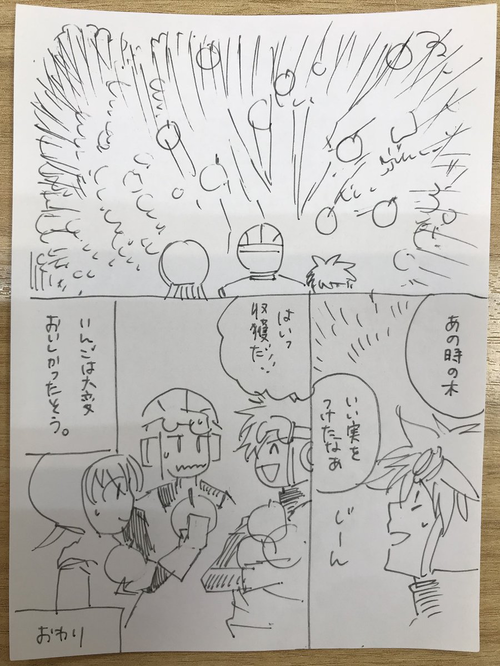 あの時の木
いい実を
つけたなぁ
じーん
はいっ
収穫だ!!
りんごは大変
おいしかったそう。
おわり